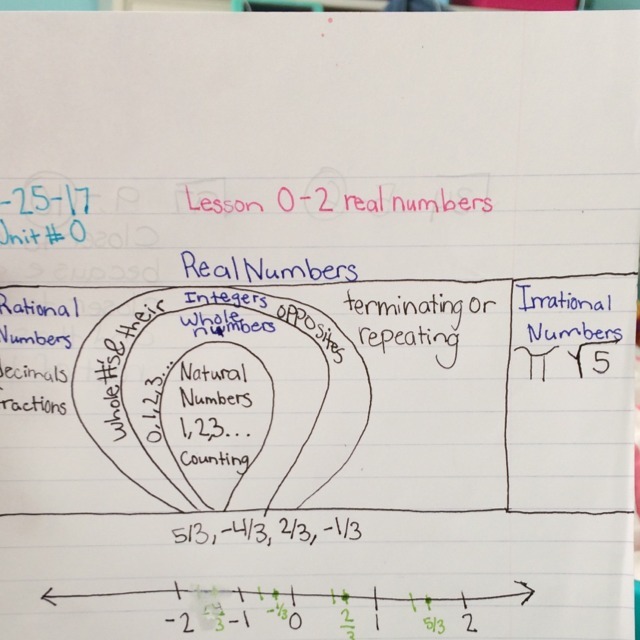 -25-17
Unit # 0
Lesson 0-2 real numbers
Real Numbers
Rational
Numbers
decimals
fractions
Integers
whole #s & their opposites
Whole
numbers
0,1,2,3...
Natural
Numbers
1,2,3...
Counting
terminating or
repeating
Irrational
Numbers
π √5
5/3, -4/3, 2/3, -1/3
-2 -4/3 -1 -1/3 0 2/3 1 5/3 2